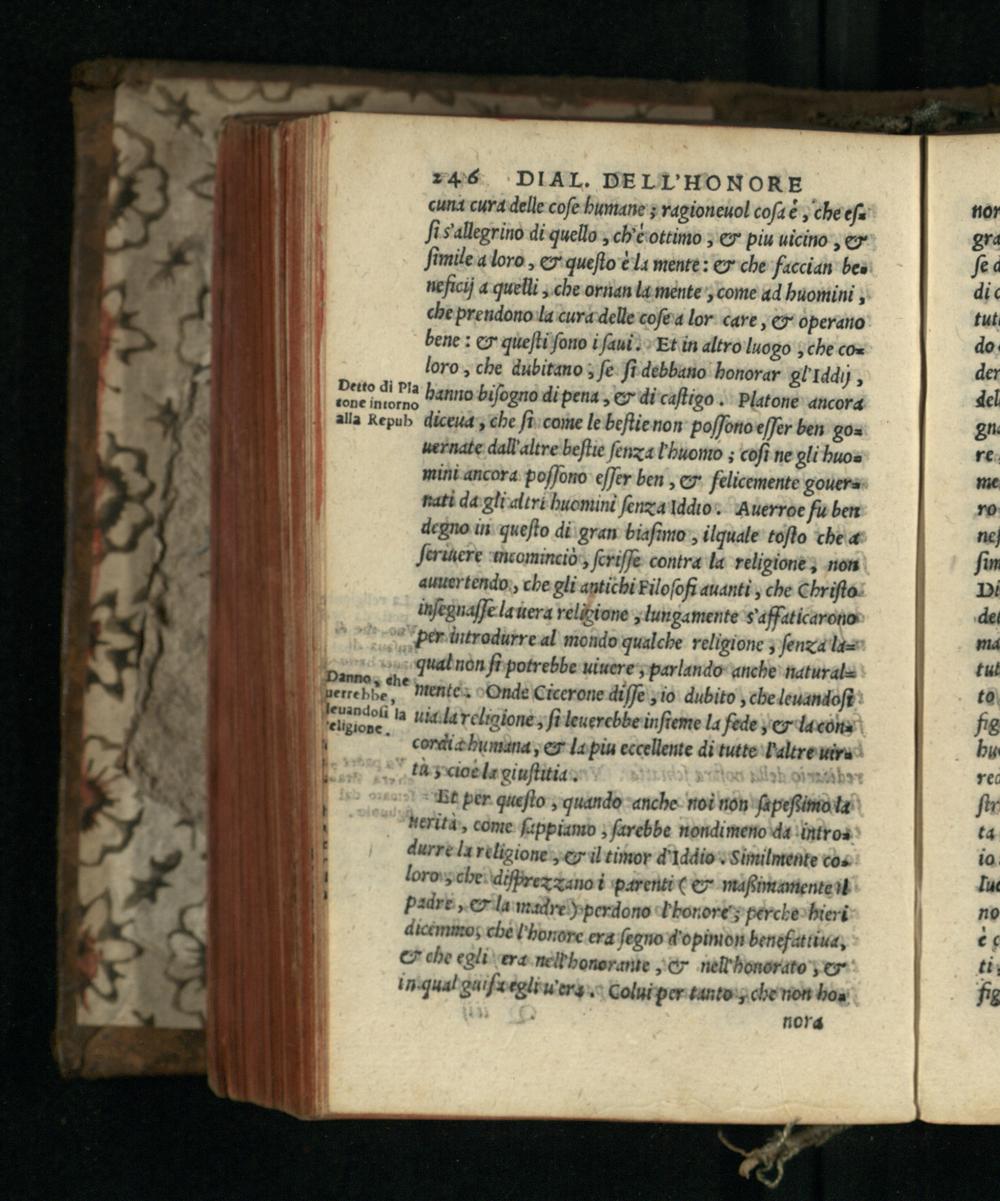 246 DIAL. DELL'HONORE
cuna cura delle coſe humane; ragioneuol coſa è, che eſ=
ſi s'allegrino di quello, ch'è ottimo, & piu uicino, &
ſimile a loro, & queſto è la mente: & che faccian be=
neficij a quelli, che ornan la mente, come ad huomini,
che prendono la cura delle coſe a lor care, & operano
bene: & queſti ſono i ſaui. Et in altro luogo, che co=
loro, che dubitano, ſe ſi debbano honorar gl'Iddij,
hanno biſogno di pena, & di caſtigo. Platone ancora
diceua, che ſi come le beſtie non poſſono eſſer ben go=
uernate dall'altre beſtie ſenza l'huomo; coſi ne gli huo=
mini ancora poſſono eſſer ben, & felicemente gouer=
nati da gli altri huomini ſenza Iddio. Auerroe fu ben
degno in queſto di gran biaſimo, ilquale toſto che a
ſcriuere incominciò, ſcriſſe contra la religione, non
auuertendo, che gli antichi Filoſofi auanti, che Chriſto
inſegnaſſe la uera religione, lungamente s'affaticarono
per introdurre al mondo qualche religione, ſenza la=
qual non ſi potrebbe uiuere, parlando anche natural=
mente. Onde Cicerone diſſe, io dubito, che leuandoſi
uia la religione, ſi leuerebbe inſieme la fede, & la con=
cordia humana, & la piu eccellente di tutte l'altre uir=
tù, cioè la giuſtitia.
Et per queſto, quando anche noi non ſapeßimo la
uerità, come ſappiamo, ſarebbe nondimeno da intro=
durre la religione, & il timor d'Iddio. Similmente co=
loro, che diſprezzano i parenti (& maßimamente il
padre, & la madre) perdono l'honore; perche hieri
dicemmo, che l'honore era ſegno d'opinion benefattiua,
& che egli era nell'honorante, & nell'honorato, &
in qual guiſa egli u'era. Colui per tanto, che non ho=
nora
Detto di Pla
tone intorno
alla Repub
Danno, che
uerrebbe,
leuandoſi la
religione.
nor
gra
ſe d
di c
tut
do
der
del
gna
re
me
ro
neſ
ſim
Di
del
ma
tut
to
fig
hu
red
ſtr
ta
io
luc
no
è c
ti;
fig